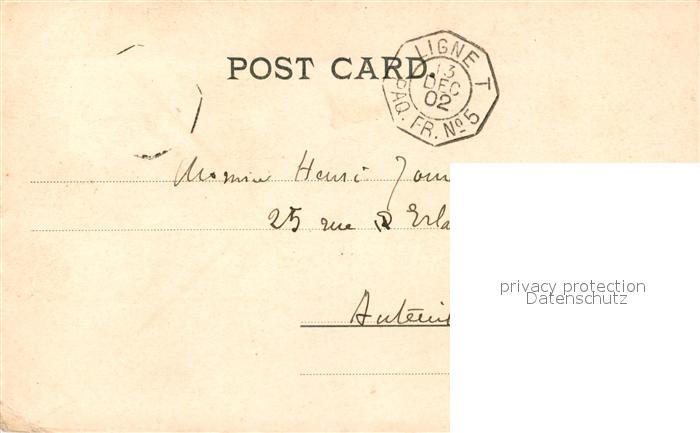 POST CARD.
LIGNE T
13
DEC
02
PAQ. FR. No 5
Henri
25 rue d'Erla
Auteuil
privacy protection
Datenschutz